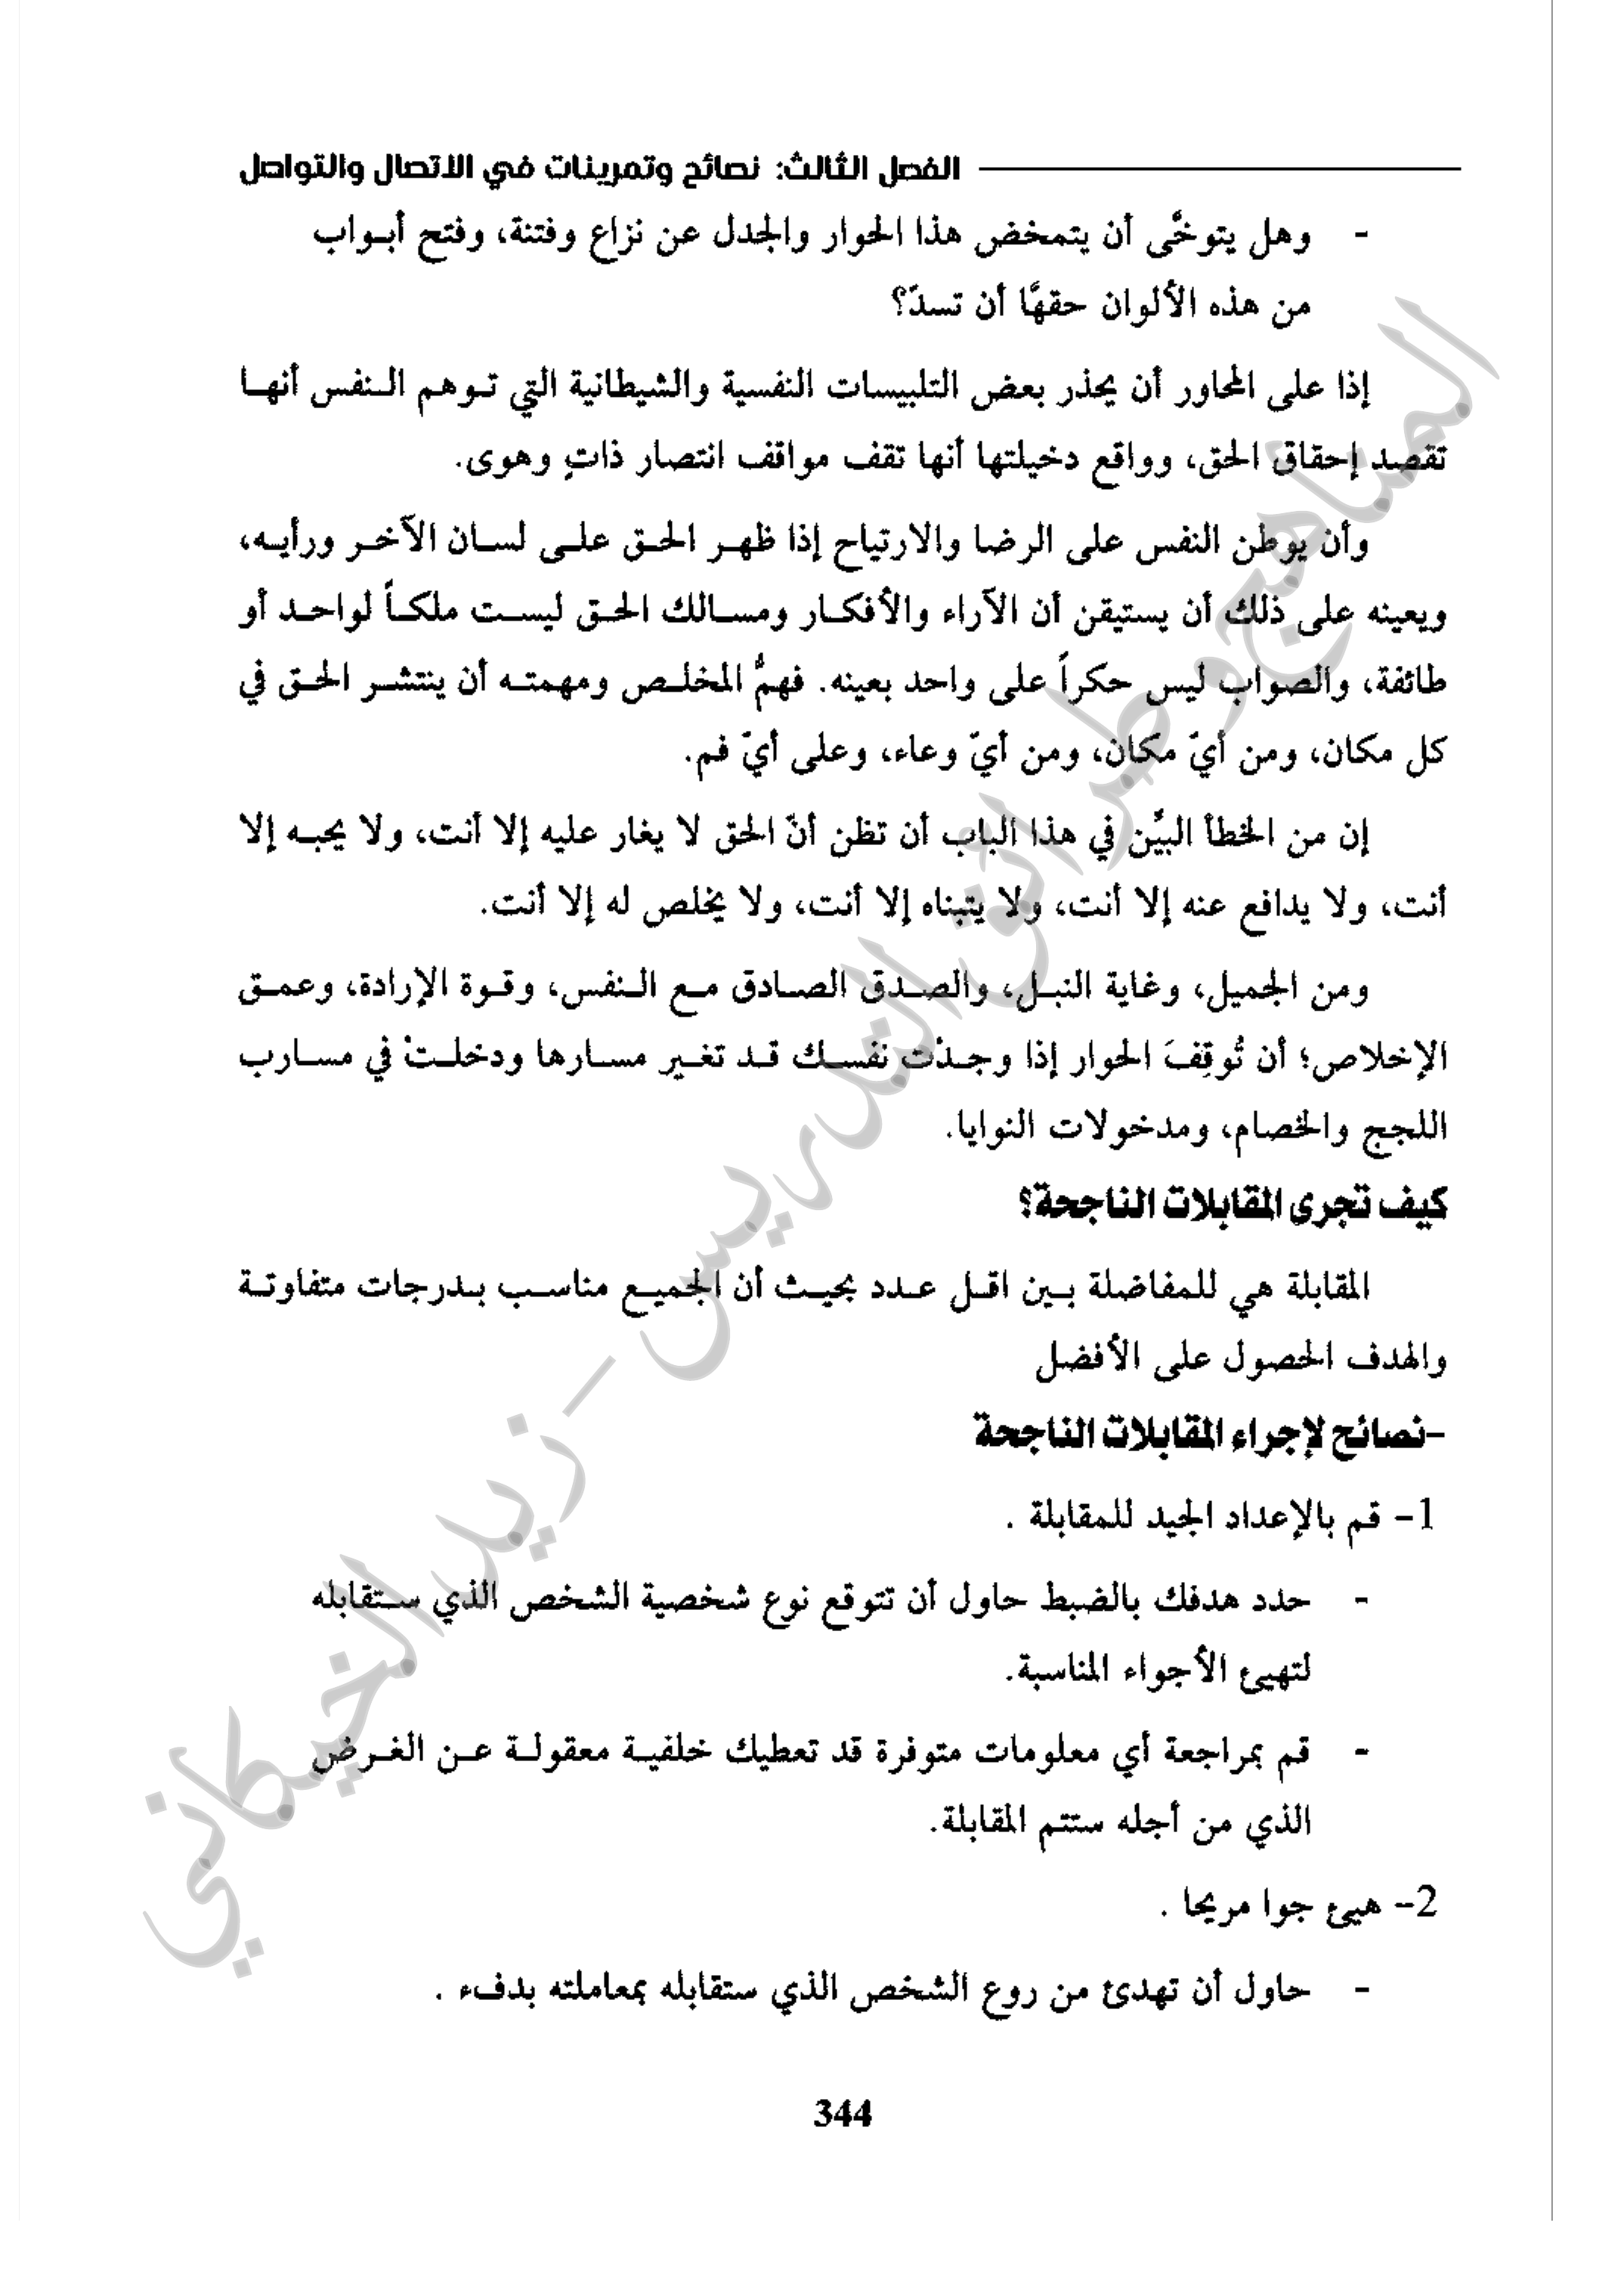 الفصل الثالث: نصائح وتمرينات في الاتصال والتواصل
- وهل يتوخَّى أن يتمخض هذا الحوار والجدل عن نزاع وفتنة، وفتح أبواب
من هذه الألوان حقهَّا أن تسدّ؟
إذا على المحاور أن يحذر بعض التلبيسات النفسية والشيطانية التي توهم النفس أنها
تقصد إحقاق الحق، وواقع دخيلتها أنها تقف مواقف انتصار ذاتٍ وهوى.
وأن يوطن النفس على الرضا والارتياح إذا ظهر الحق على لسان الآخر ورأيه،
ويعينه على ذلك أن يستيقن أن الآراء والأفكار ومسالك الحق ليست ملكاً لواحد أو
طائفة، والصواب ليس حكراً على واحد بعينه. فهمُّ المخلص ومهمته أن ينتشر الحق في
كل مكان، ومن أيّ مكان، ومن أيّ وعاء، وعلى أيّ فم.
إن من الخطأ البيِّن في هذا الباب أن تظن أنّ الحق لا يغار عليه إلا أنت، ولا يحبه إلا
أنت، ولا يدافع عنه إلا أنت، ولا يتبناه إلا أنت، ولا يخلص له إلا أنت.
ومن الجميل، وغاية النبل، والصدق الصادق مع النفس، وقوة الإرادة، وعمق
الإخلاص؛ أن تُوقِفَ الحوار إذا وجدْت نفسك قد تغير مسارها ودخلتْ في مسارب
اللجج والخصام، ومدخولات النوايا.
كيف تجرى المقابلات الناجحة؟
المقابلة هي للمفاضلة بين اقل عدد بحيث أن الجميع مناسب بدرجات متفاوتة
والهدف الحصول على الأفضل
-نصائح لإجراء المقابلات الناجحة
1- قم بالإعداد الجيد للمقابلة .
- حدد هدفك بالضبط حاول أن تتوقع نوع شخصية الشخص الذي ستقابله
لتهيئ الأجواء المناسبة.
- قم بمراجعة أي معلومات متوفرة قد تعطيك خلفية معقولة عن الغرض
الذي من أجله ستتم المقابلة.
2- هيئ جوا مريحا .
- حاول أن تهدئ من روع الشخص الذي ستقابله بمعاملته بدفء .
344
المناهج وطرائق التدريس - زيد الخيكاني